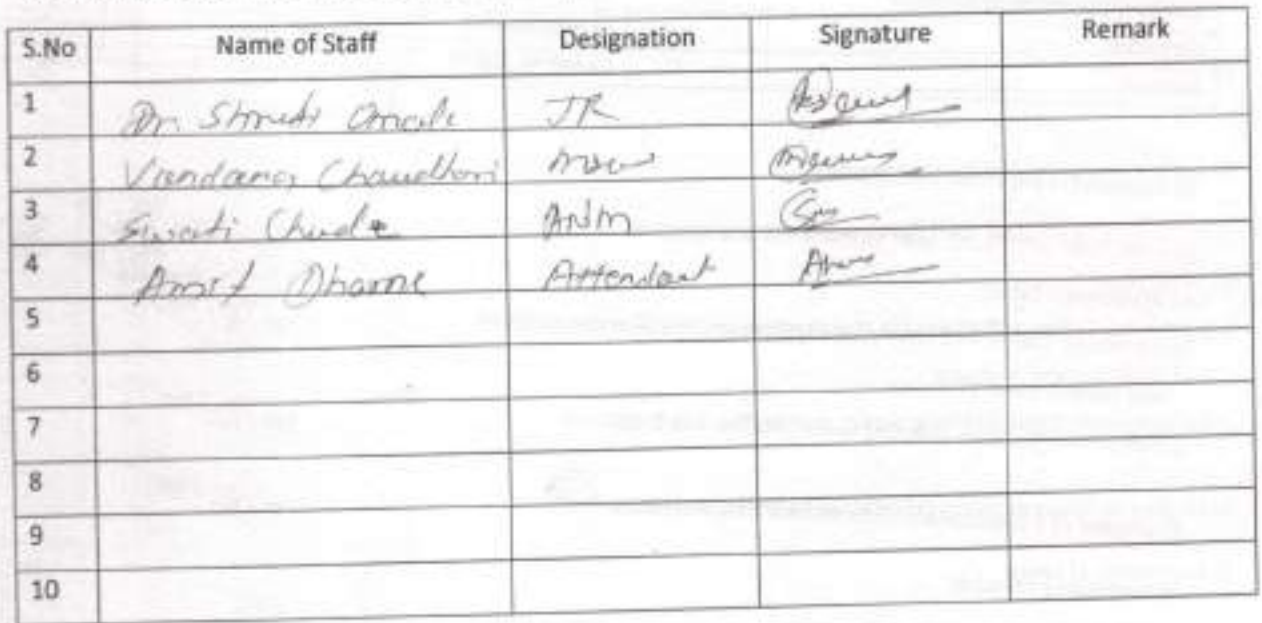 S.No Name of Staff Designation Signature Remark
1 Dr. Shruti JR
2 Vandana Chaudhari MSW
3 Swati Chude ANM
4 Amit Dhame Attendant
5
6
7
8
9
10